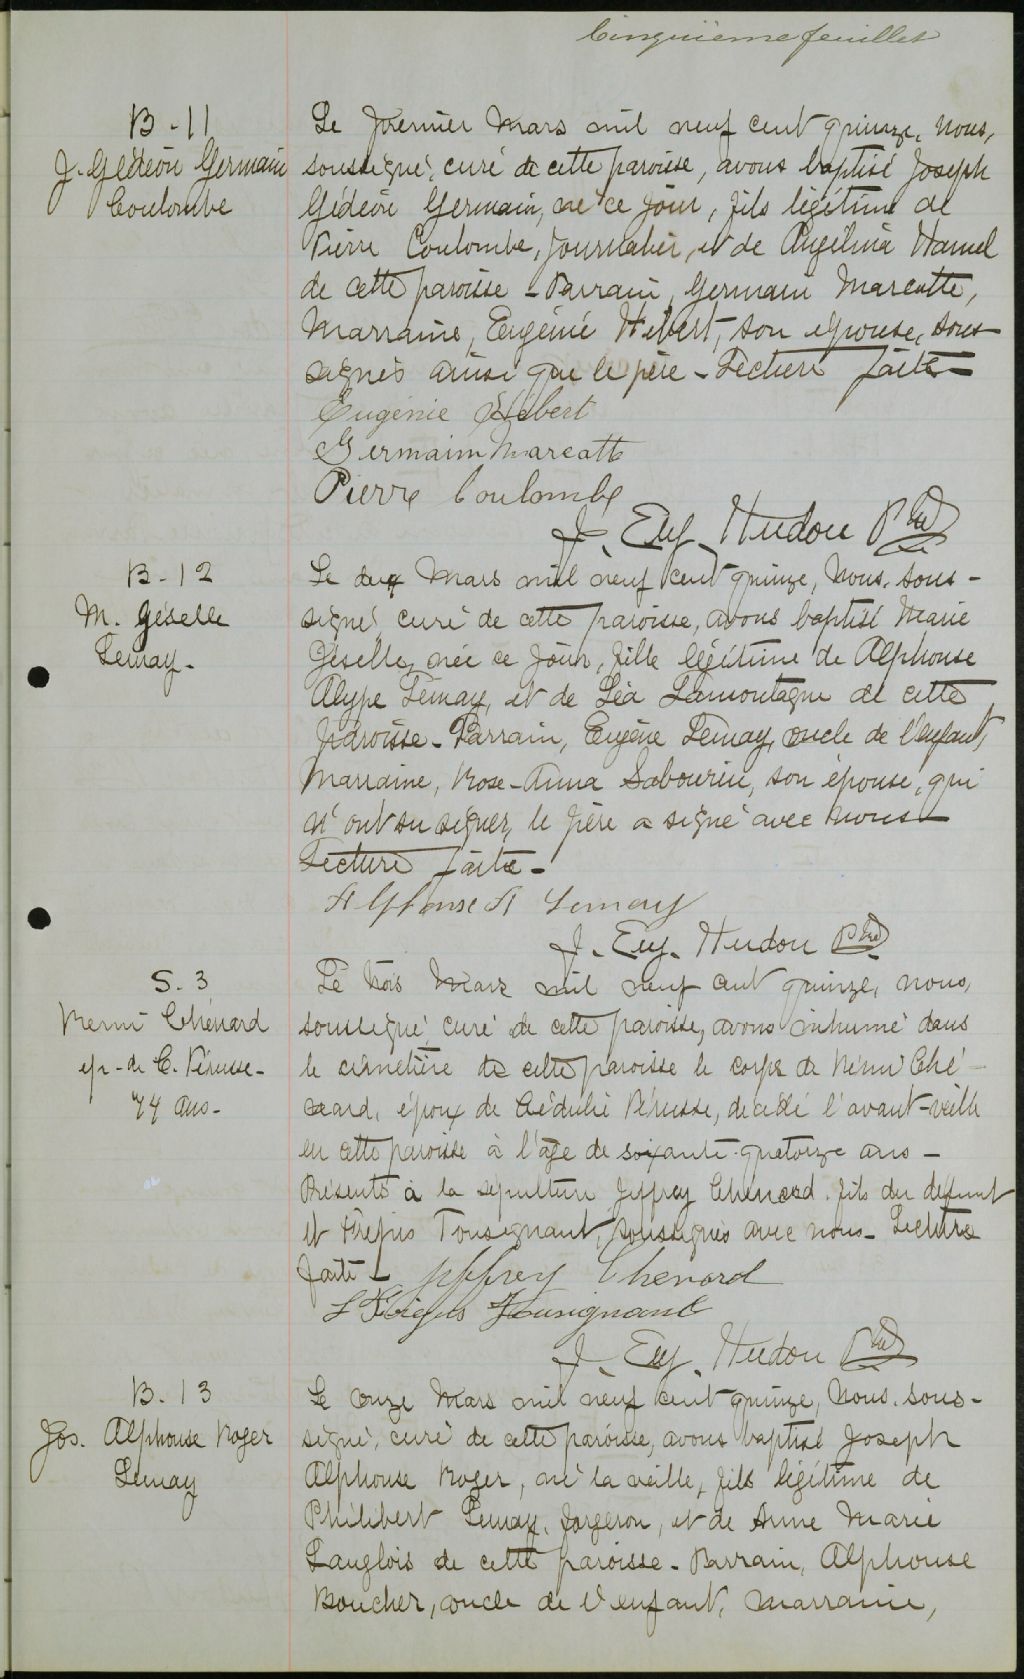 Cinquième feuillet
B - 11
J. Gédéon Germain
Coulombe
Le premier Mars mil neuf cent quinze, nous,
soussigné, curé de cette paroisse, avons baptisé Joseph
Gédéon Germain, né ce jour, fils légitime de
Pierre Coulombe, journalier, et de Angélina Hamel
de cette paroisse - Parrain, Germain Marcotte,
Marraine, Eugénie Hébert, son épouse, sous-
signés ainsi que le père - Lecture faite -
Eugénie Hébert
Germain Marcotte
Pierre Coulombe
J. Eug. Hudon Ptre
B - 12
M. Géselle
Lemay -
Le deux Mars mil neuf cent quinze, Nous, sous-
signé, curé de cette paroisse, avons baptisé Marie
Géselle, née ce jour, fille légitime de Alphonse
Alype Lemay, et de Léa Lamontagne de cette
paroisse - Parrain, Eugène Lemay, oncle de l'enfant,
Marraine, Rose-Anna Sabourin, son épouse, qui
n'ont su signer, le père a signé avec nous -
Lecture faite -
Alphonse A Lemay
J. Eug. Hudon Ptre
S. 3
Rémi Chénard
ép - de C. Pérusse -
74 ans -
Le trois Mars mil neuf cent quinze, nous,
soussigné, curé de cette paroisse, avons inhumé dans
le cimetière de cette paroisse le corps de Rémi Ché-
nard, époux de Cédulie Pérusse, décédé l'avant-veille
en cette paroisse à l'âge de soixante-quatorze ans -
Présents à la sépulture Jeffrey Chénard, fils du défunt
et Tousignant, soussignés avec nous - Lecture
faite - Jeffrey Chenard
Tousignant
J. Eug. Hudon Ptre
B. 13
Jos. Alphonse Roger
Lemay
Le onze Mars mil neuf cent quinze, Nous, sous-
signé, curé de cette paroisse, avons baptisé Joseph
Alphonse Roger, né la veille, fils légitime de
Philibert Lemay, forgeron, et de Anne Marie
Langlois de cette paroisse - Parrain, Alphonse
Boucher, oncle de l'enfant, Marraine,